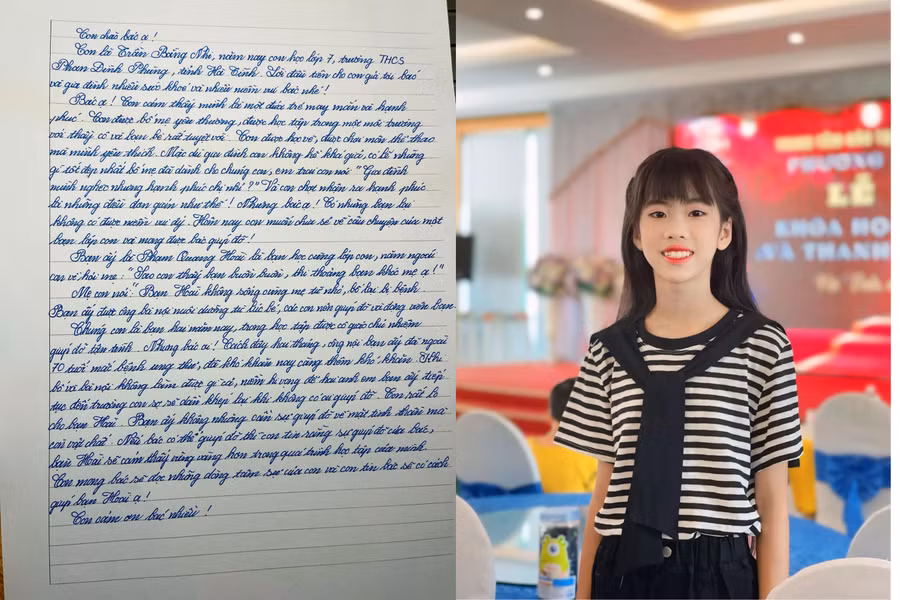 Con chào bác ạ!
Con là Trần Băng Nhi, năm nay con học lớp 7, trường THCS
Phan Đình Phùng, tỉnh Hà Tĩnh. Lời đầu tiên cho con gửi tới bác
và gia đình nhiều sức khoẻ và nhiều niềm vui bác nhé!
Bác ạ! Con cảm thấy mình là một đứa trẻ may mắn và hạnh
phúc. Con được bố mẹ yêu thương, được học tập trong một môi trường
với thầy cô và bạn bè rất tuyệt vời. Con được học vẽ, được chơi môn thể thao
mà mình yêu thích. Mặc dù gia đình con không hề khá giả, có lẽ những
gì tốt đẹp nhất bố mẹ đã dành cho chúng con, em trai con nói "Gia đình
mình nghèo nhưng hạnh phúc chị nhỉ?" Và con chợt nhận ra hạnh phúc
là những điều đơn giản như thế! Nhưng bác ạ! Có những bạn lại
không có được niềm vui ấy. Hôm nay con muốn chia sẻ về câu chuyện của một
bạn lớp con và mong được bác giúp đỡ!
Bạn ấy là Phạm Quang Hoài là bạn học cùng lớp con, năm ngoái
con về hỏi mẹ: "Sao con thấy bạn buồn buồn, thi thoảng bạn khóc mẹ ạ!"
Mẹ con nói: "Bạn Hoài không sống cùng mẹ từ nhỏ, bố lại bị bệnh.
Bạn ấy được ông bà nội nuôi dưỡng từ lúc bé, các con nên giúp đỡ và động viên bạn.
Chúng con là bạn hai năm nay, trong học tập được cô giáo chủ nhiệm
giúp đỡ tận tình. Nhưng bác ạ! Cách đây hai tháng, ông nội bạn ấy đã ngoài
70 tuổi mắc bệnh ung thư, đã khó khăn nay càng thêm khó khăn. Khi
bố và bà nội không làm được gì cả, niềm hi vọng để hai anh em bạn ấy tiếp
tục đến trường con sợ sẽ dần khép lại khi không có sự giúp đỡ. Con rất lo
cho bạn Hoài. Bạn ấy không những cần sự giúp đỡ về mặt tinh thần mà
còn vật chất. Nếu bác có thể giúp đỡ thì con tin rằng sự giúp đỡ của bác,
bạn Hoài sẽ cảm thấy vững vàng hơn trong quá trình học tập của mình.
Con mong bác sẽ đọc những dòng tâm sự của con và con tin bác sẽ có cách
giúp bạn Hoài ạ!
Con cảm ơn bác nhiều!
LỄ
KHÓA HỌ
VÀ THANH